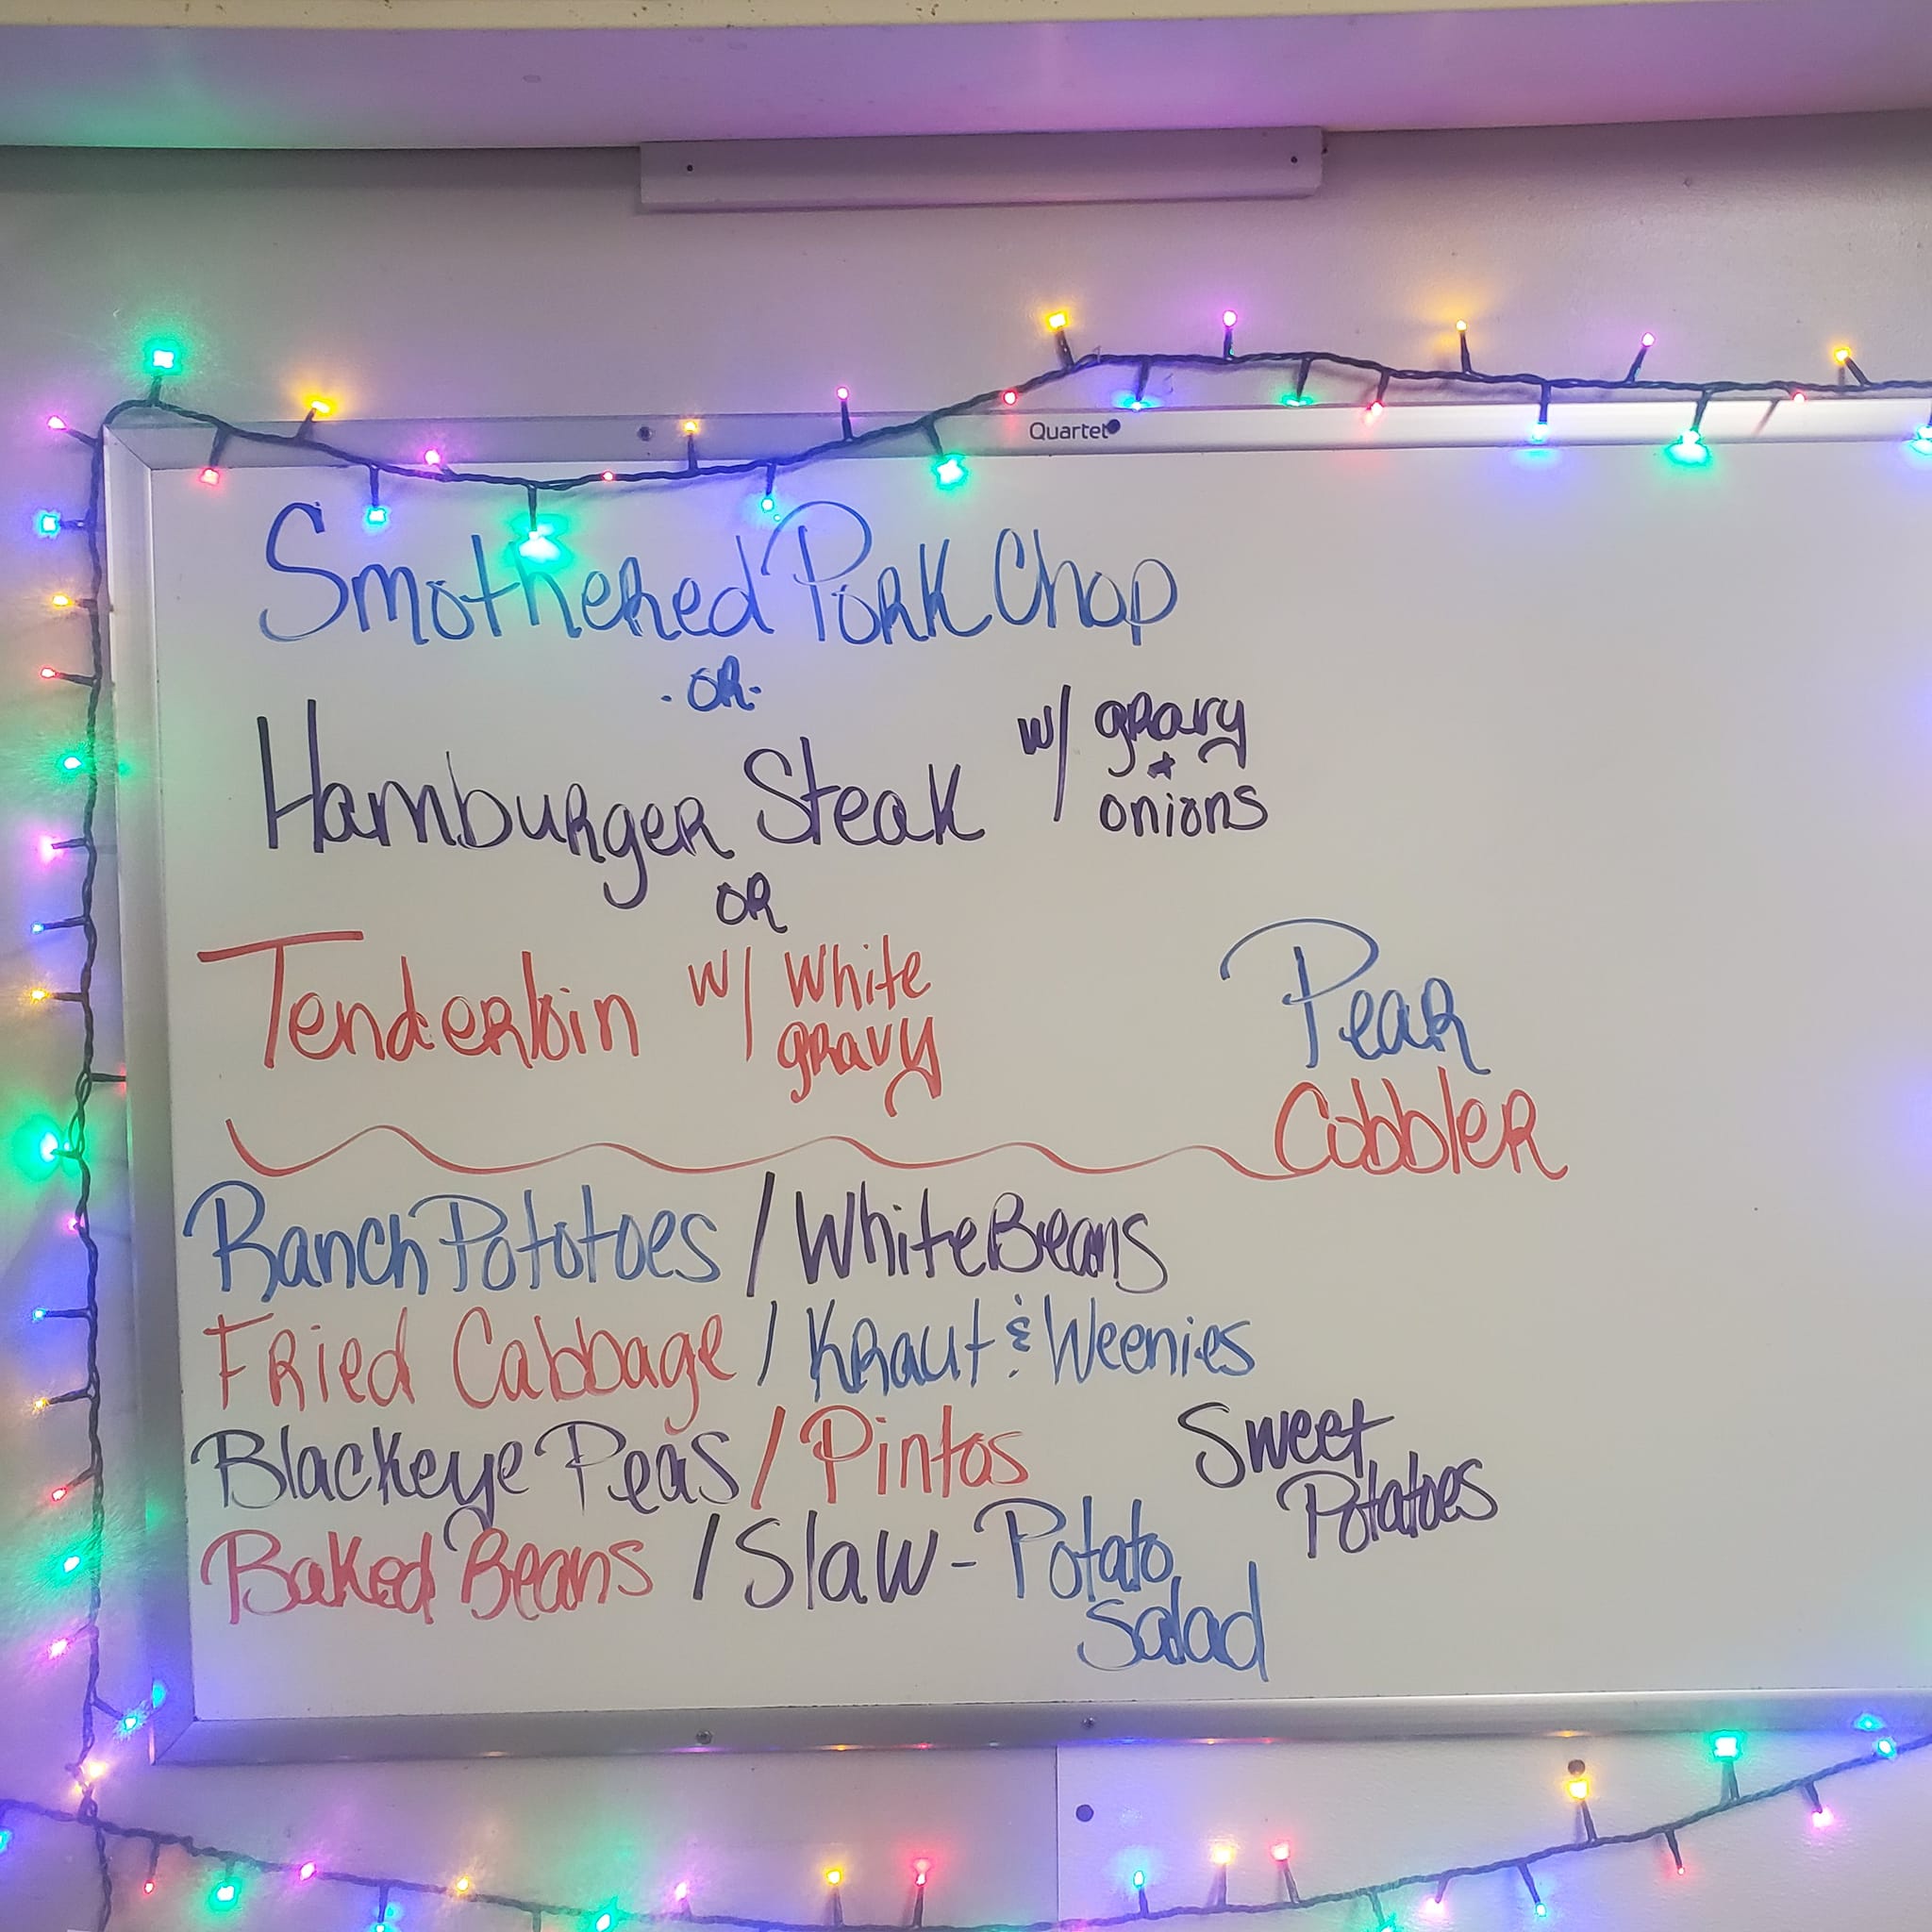 Quartet
Smothered Pork Chop
- OR -
Hamburger Steak w/ gravy
+
onions
OR
Tenderloin w/ White
gravy
Pear
Cobbler
Ranch Pototoes / White Beans
Fried Cabbage / Kraut & Weenies
Blackeye Peas / Pintos
Sweet
Potatoes
Baked Beans / Slaw - Potato
Salad